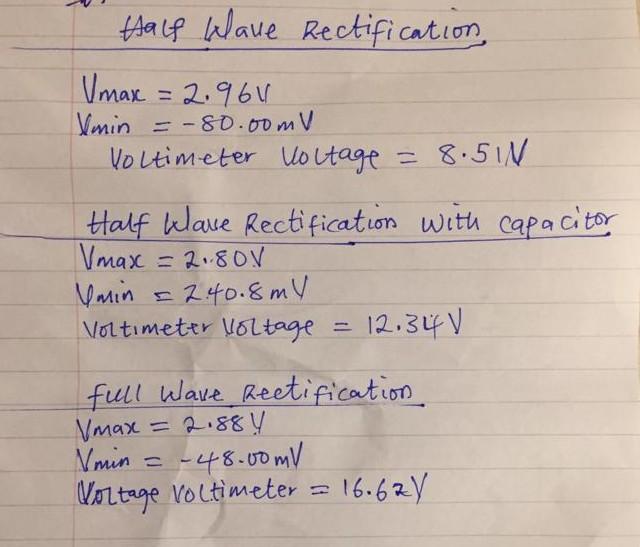 Half Wave Rectification
Vmax = 2.96V
Vmin = -80.00mV
Voltimeter Voltage = 8.51V
Half Wave Rectification with capacitor
Vmax = 2.80V
Vmin = 240.8mV
Voltimeter Voltage = 12.34V
full Wave Rectification
Vmax = 2.88V
Vmin = -48.00mV
Voltage Voltimeter = 16.62V